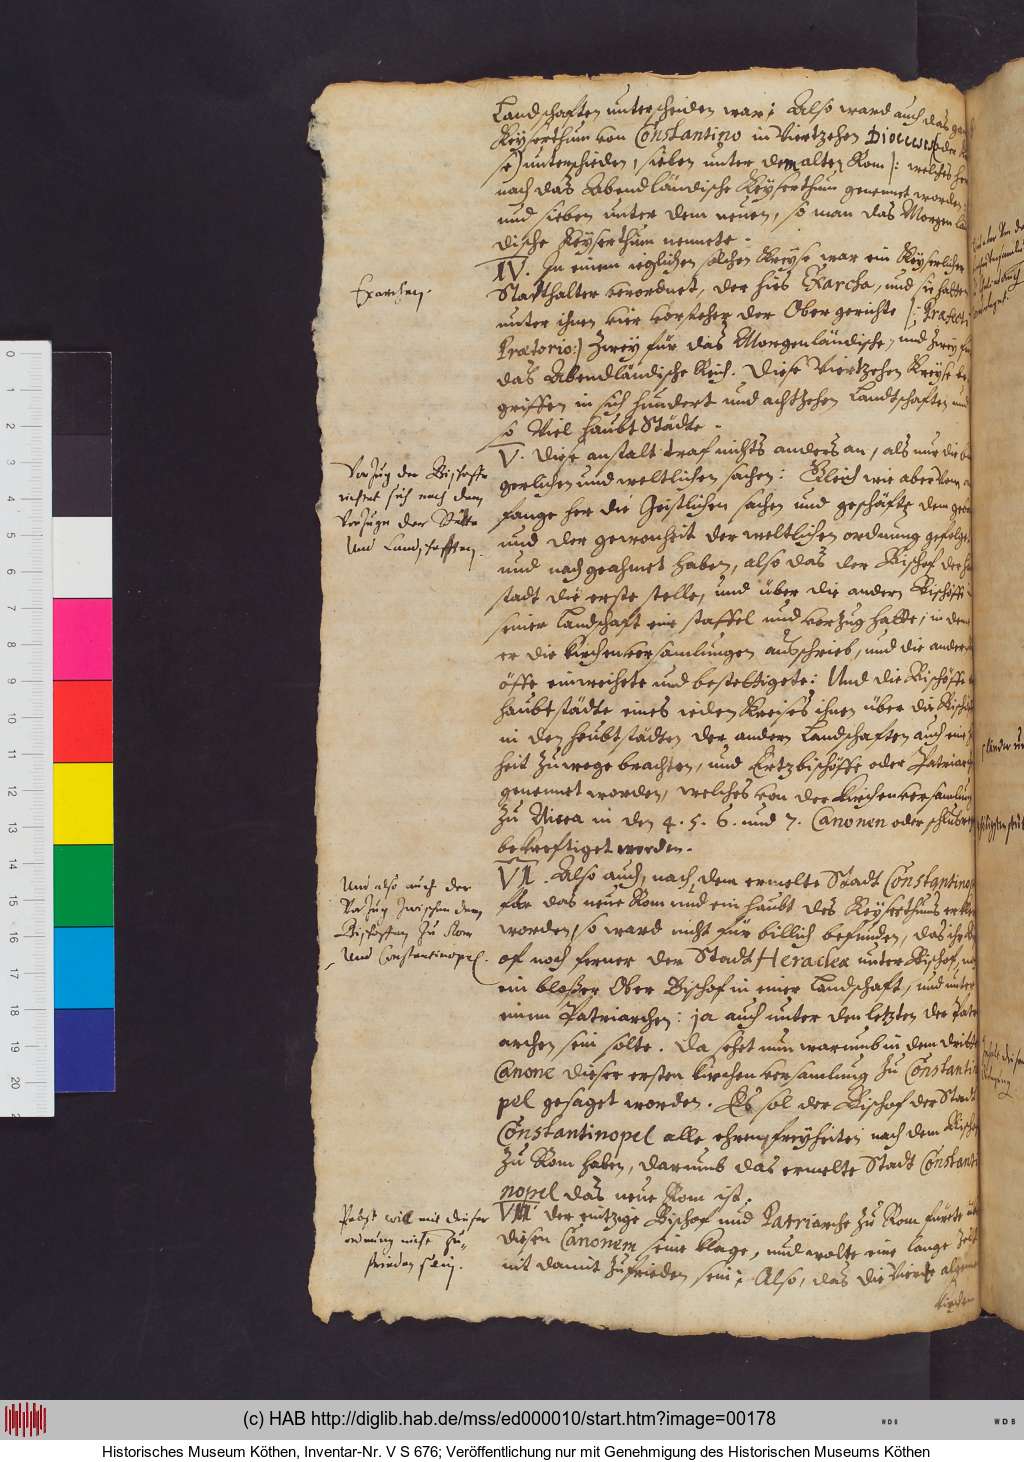 Landschaften unterscheiden war; Also ward auch das
Keyserthum von Constantino in Viertzehen Dioeceses
unterschieden, sieben unter dem alten Rom |: welches
nach das Abendländische Keyserthum genennet worden
und sieben unter dem neuen, so man das Morgen
dische Keyserthum nennete.
Exarchen.
IV. In einem ieglichen solchen Kreyse war ein Keyserlicher
Stadthalter verordnet, der hies Exarcha, und sie hatten
unter ihnen vier vorsteher der Ober gerichte |: Præfecti
Prætorio:| Zwey für das Morgenländische, und zwey für
das Abendländische Reich. Diese Viertzehen Kreyse be
griffen in sich hundert und achtzehen Landtschaften und
so viel haubt Städte.
Vorzug der Bischoffe
richtet sich nach dem
Vorzuge der Städte
und Landschafften.
V. Diese anstalt traf nichts anders an, als nur die
gerlichen und weltlichen sachen: Gleich wie aber vom
fange her die Geistlichen sachen und geschäfte dem
und der gewonheit der weltlichen ordnung gefolget
und nach geahmet haben, also das der Bischof der
stadt die erste stelle, und über die andern Bischöffe
seiner Landschaft eine staffel und vorzug hatte; in dem
er die kirchenversamlungen außschrieb, und die andern
öffe einweihete und bestettigete: Und die Bischöffe
haubtstädte eines ieden Kreises ihnen über die Bischöffe
in den heubtstädten der andern Landschaften auch eine
heit zuwege brachten, und Ertzbischöffe oder Patriarchen
genennet worden, welches von der Kirchenversamlung
zu Nicea in den 4. 5. 6. und 7. Canonen oder schlüssen
bekreftiget worden.
Und also auch der
Vorzug zwischen dem
Bischoffen zu Rom
und Constantinopel.
VI. Also auch, nach dem ermelte Stadt Constantinopel
für das neue Rom und ein haubt des Keyserthums
worden, so ward nicht für billich befunden, das ihr
of noch ferner der Stadt Heraclea unter Bischof,
ein bloßer Ober Bischof in einer Landschaft, und unter
einem Patriarchen: ja auch unter den letzten der Patri
archen sein solte. Da sehet nun warumb in dem dritten
Canone dieser ersten kirchen versamlung zu Constantino
pel gesaget worden. Es sol der Bischof der Stadt
Constantinopel alle ehren freyheiten nach dem Bischof
zu Rom haben, darumb das ermelte Stadt Constanti
nopel das neue Rom ist.
Pabst will mit dieser
ordnung nicht zu-
frieden sein.
VII. Der eintzige Bischof und Patriarche zu Rom fürete
diesen Canonem seine klage, und wolte eine lange Zeit
nit damit zufrieden sein; Also, das die Vierde
Kirchen
(c) HAB http://diglib.hab.de/mss/ed000010/start.htm?image=00178
Historisches Museum Köthen, Inventar-Nr. V S 676; Veröffentlichung nur mit Genehmigung des Historischen Museums Köthen